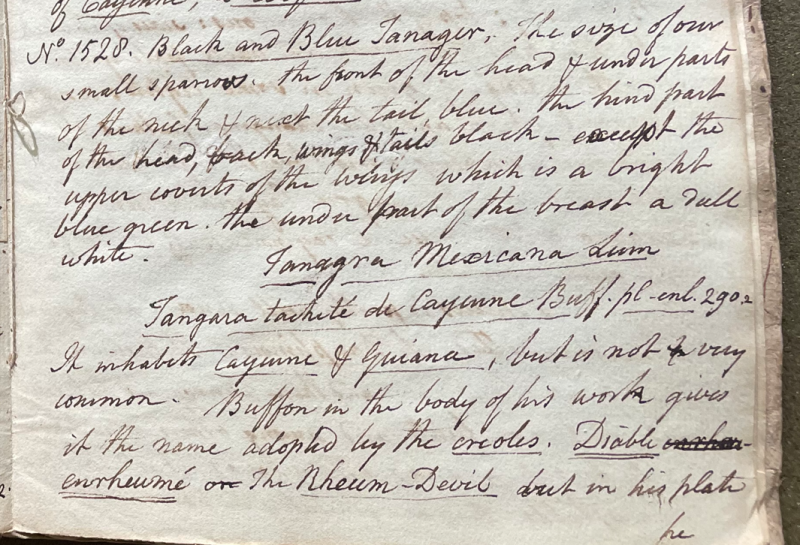 of Cayenne,
No. 1528. Black and Blue Tanager. The size of our
small sparrow. the front of the head & under parts
of the neck & next the tail, blue. the hind part
of the head, back, wings & tails black - except the
upper coverts of the wings which is a bright
blue green. the under part of the breast a dull
white.
Tanagra Mexicana Linn
Tangara tachité de Cayenne Buff. pl-enl. 290.2
It inhabits Cayenne & Guiana, but is not very
common. Buffon in the body of his work gives
it the name adopted by the creoles. Diable
enrheumé or The Rheum-Devil but in his plate
he